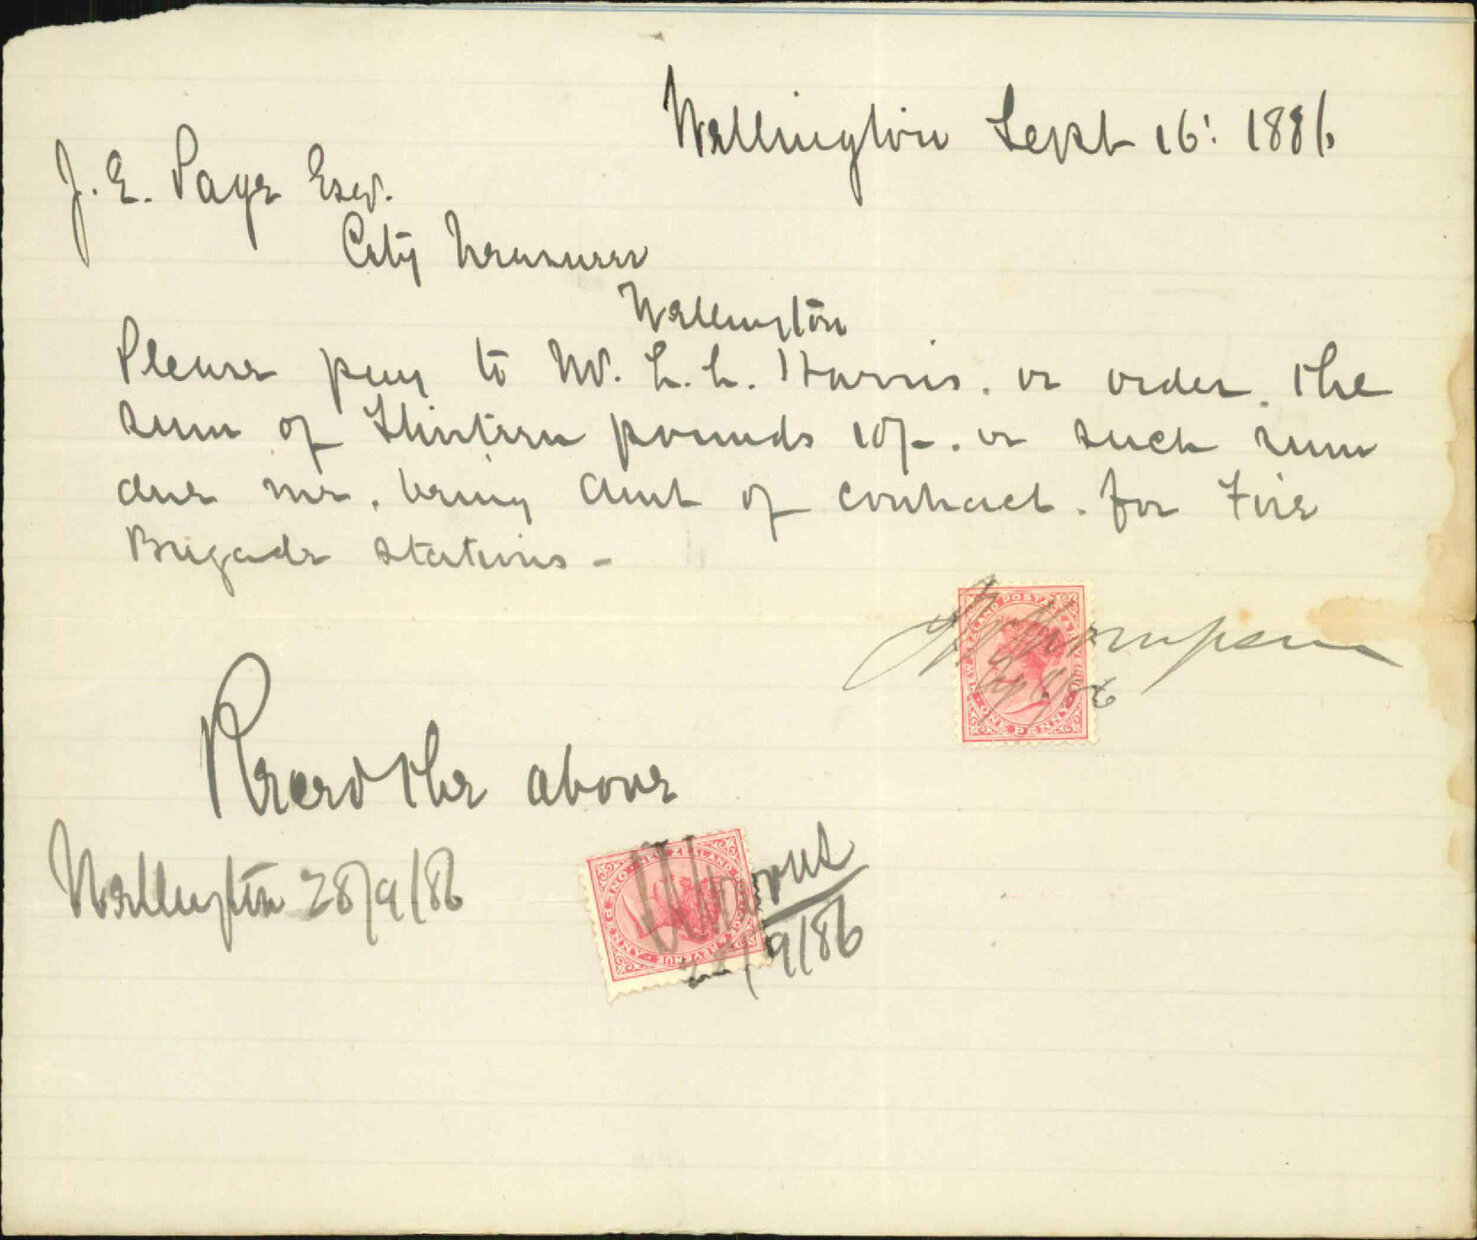 Wellington Sept 16: 1886
J. E. Page Esqr.
City Treasurer
Wellington
Please pay to W. L. L. Harris. or order. the
sum of Thirteen pounds 10/-. or such sum
due me. being Amt of contract. for Fire
Brigade stations -
NEW ZEALAND POSTAGE & REVENUE
ONE PENNY
Thompson
Recevd the above
Wellington 28/9/86
NEW ZEALAND POSTAGE & REVENUE
ONE PENNY
Harris
28/9/86